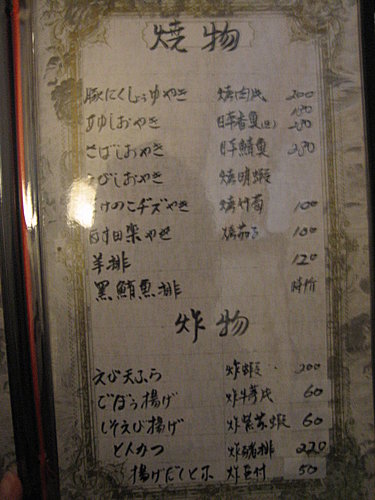 焼物
豚にくしょうゆやき 燒肉片 200
あゆしおやき 日本香魚(2) 180 280
さばしおやき 日本鯖魚 280
えびしおやき 燒明蝦
たけのこチーズやき 燒竹筍 100
なす田楽やき 燒茄子 100
羊排 120
黑鮪魚排 時价
炸物
えび天ふら 炸蝦 200
ごぼう揚げ 炸牛蒡片 60
しそえび揚げ 炸紫蘇蝦 60
とんかつ 炸豬排 220
揚げだしとふ 炸豆付 50